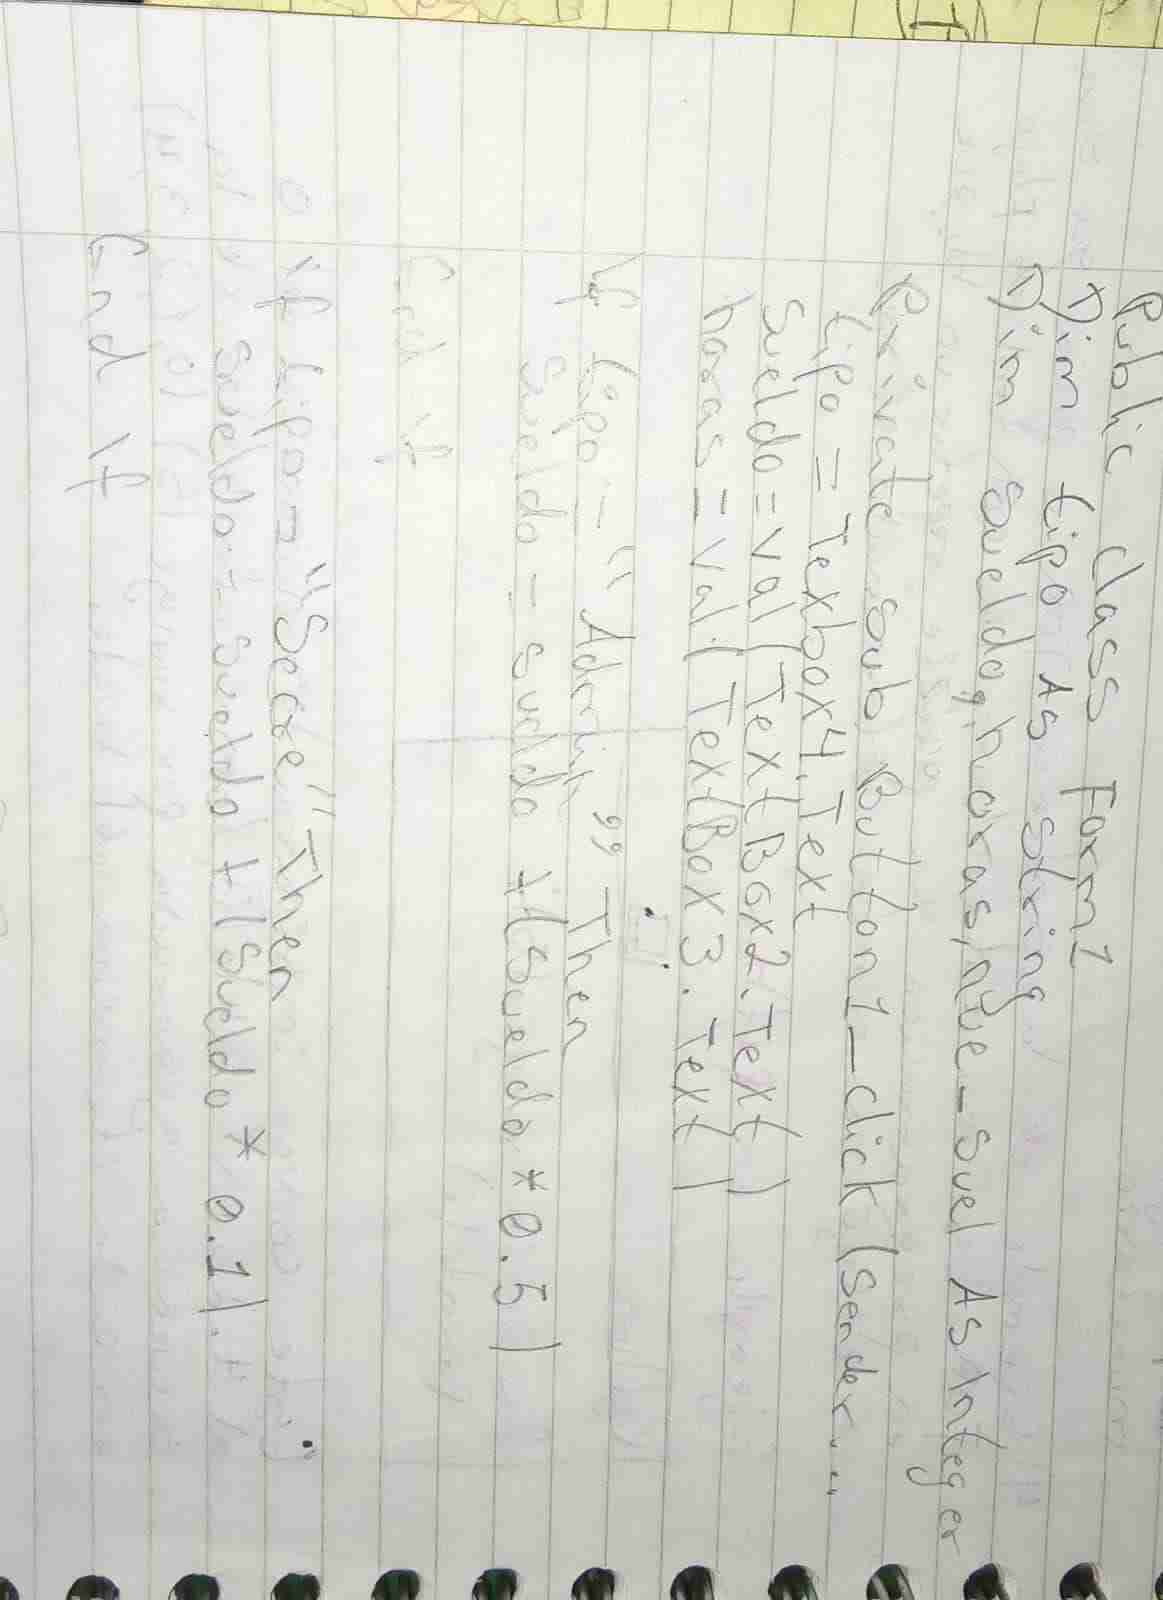 Public class Form1
Dim tipo As string
Dim sueldo, horas, nue_suel As Integer
Private sub Button1_click (sender...
tipo = Texbox4.Text
sueldo = val (TextBox2.Text)
horas = val (TextBox3.Text)
If tipo = "Admin" Then
sueldo = sueldo + (sueldo * 0.5)
End If
If tipo = "Secre" Then
sueldo = sueldo + (sueldo * 0.1)
End If